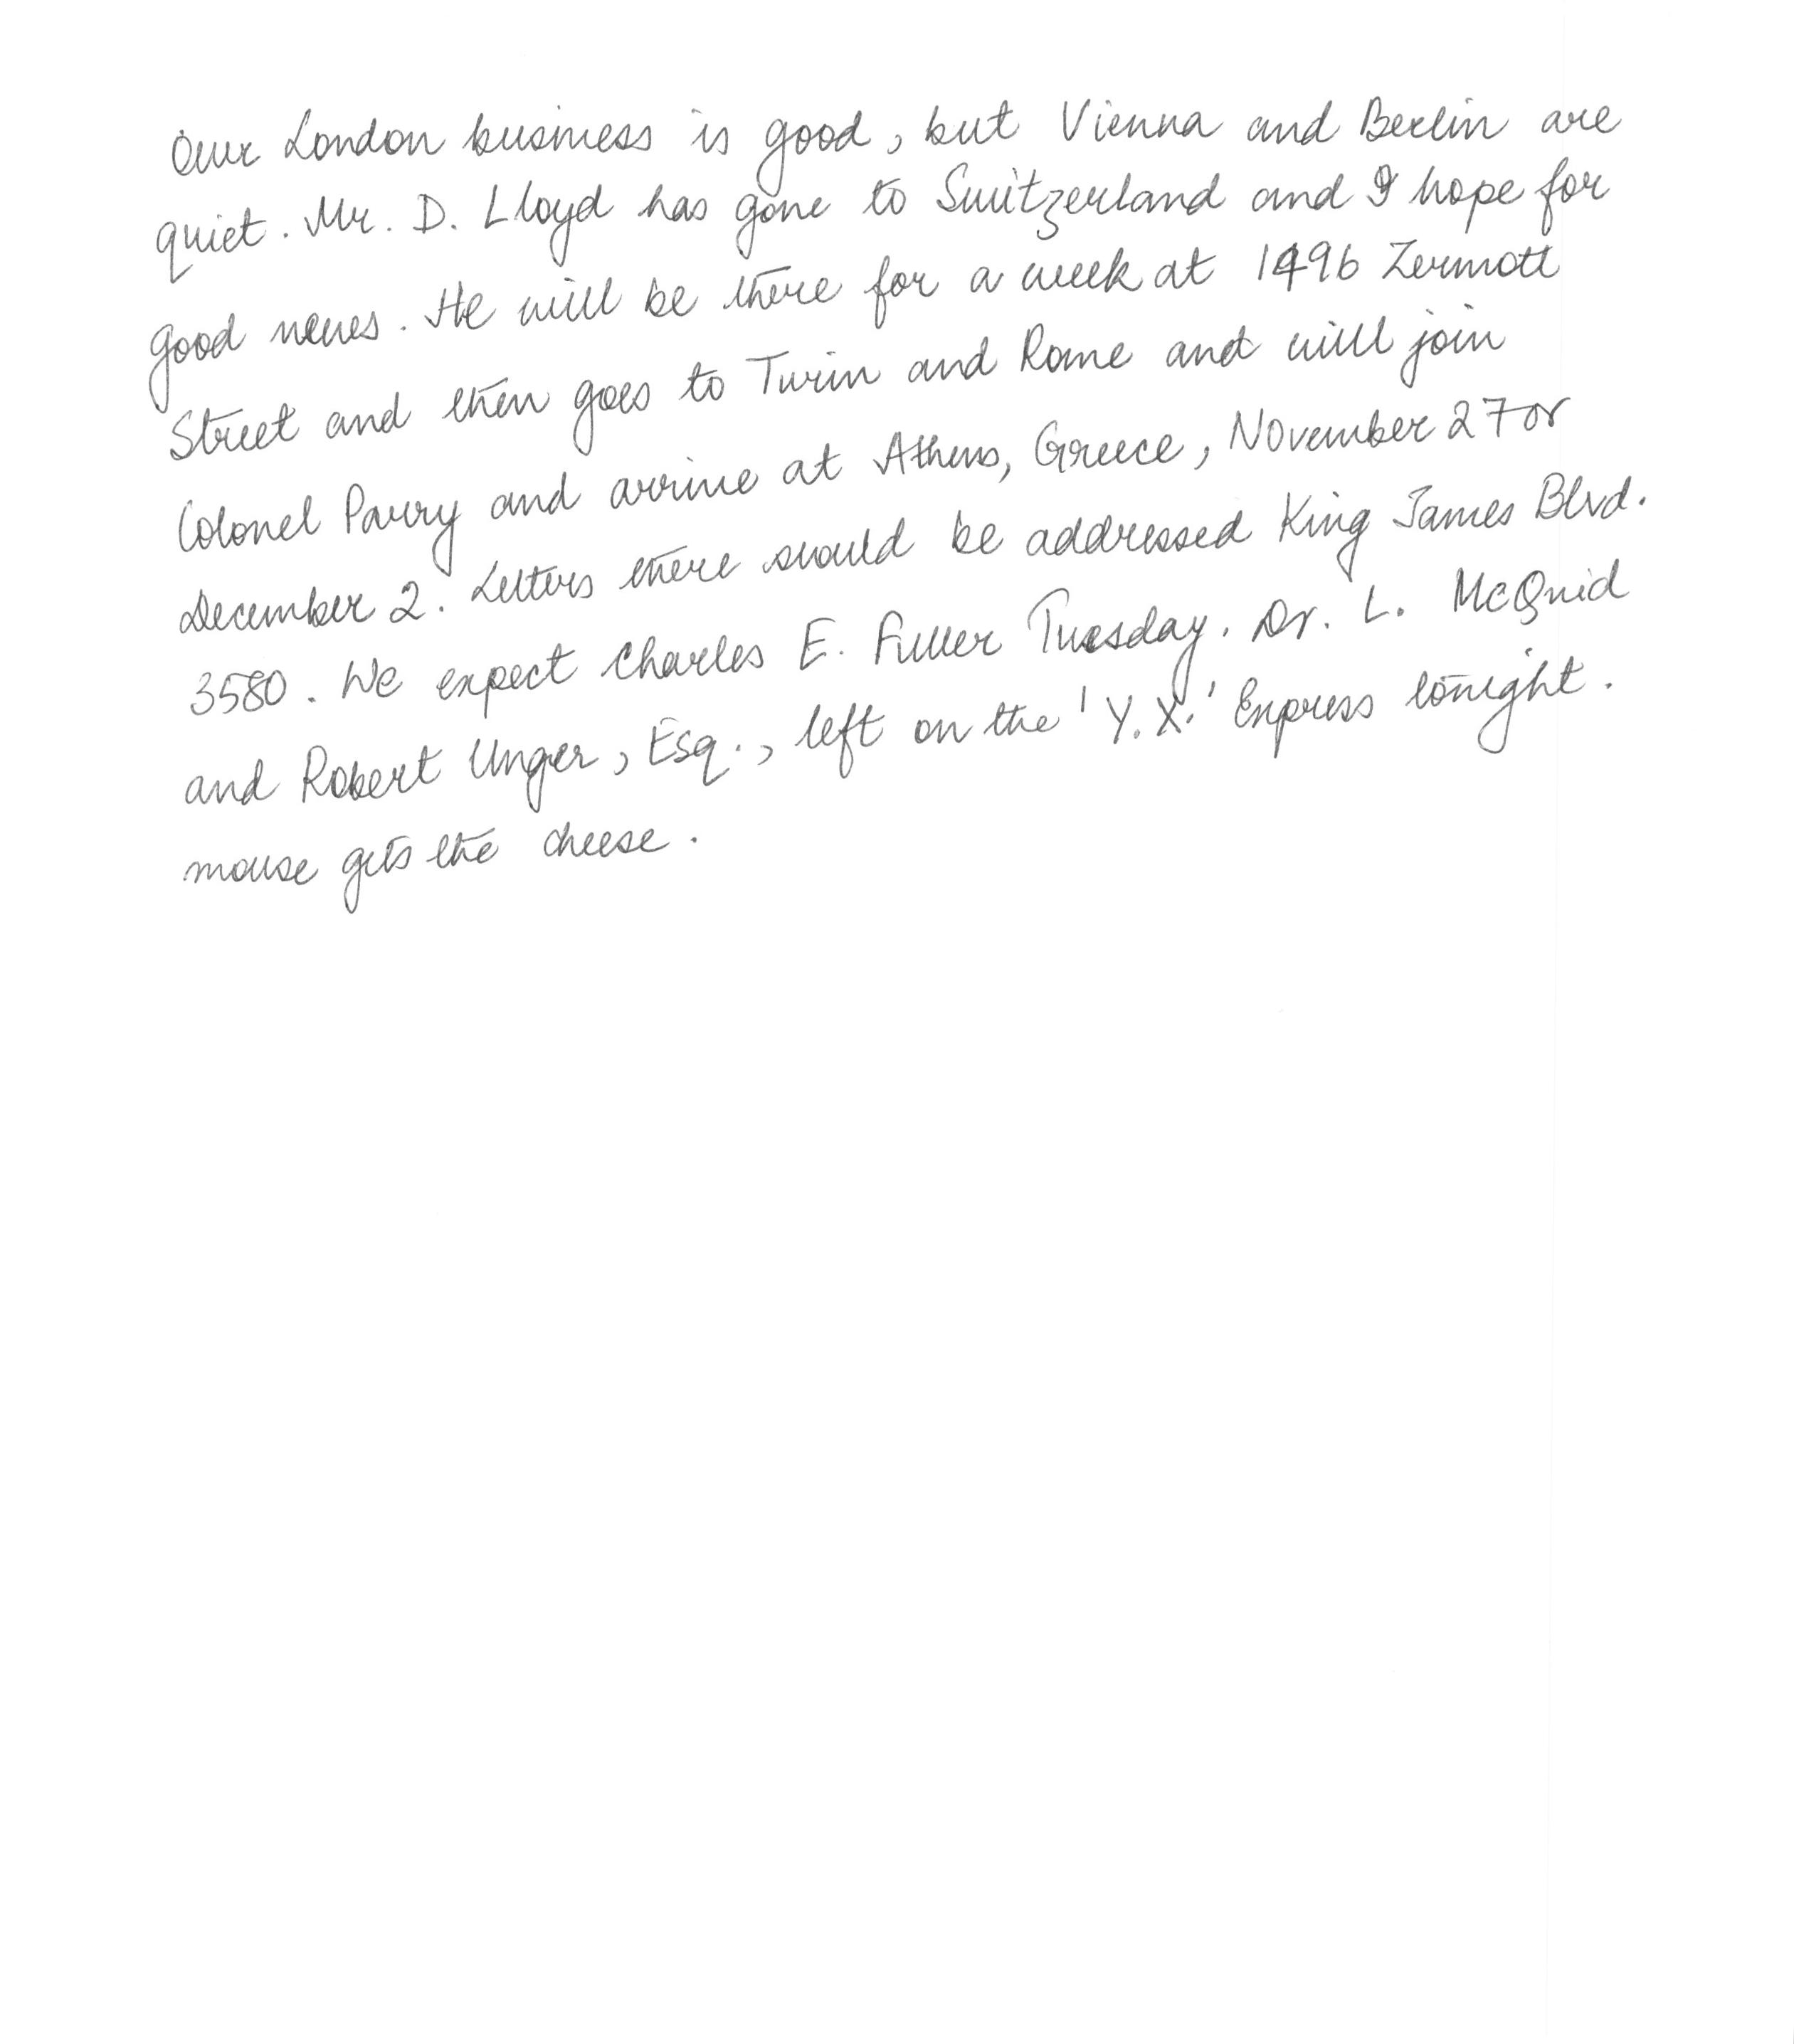 Our London business is good, but Vienna and Berlin are
quiet. Mr. D. Lloyd has gone to Switzerland and I hope for
good news. He will be there for a week at 1496 Zermott
Street and then goes to Turin and Rome and will join
Colonel Parry and arrive at Athens, Greece, November 27 or
December 2. Letters there should be addressed King James Blvd.
3580. We expect Charles E. Fuller Tuesday. Dr. L. McQuid
and Robert Unger, Esq., left on the 'Y.X.' Express tonight.
mouse gets the cheese.